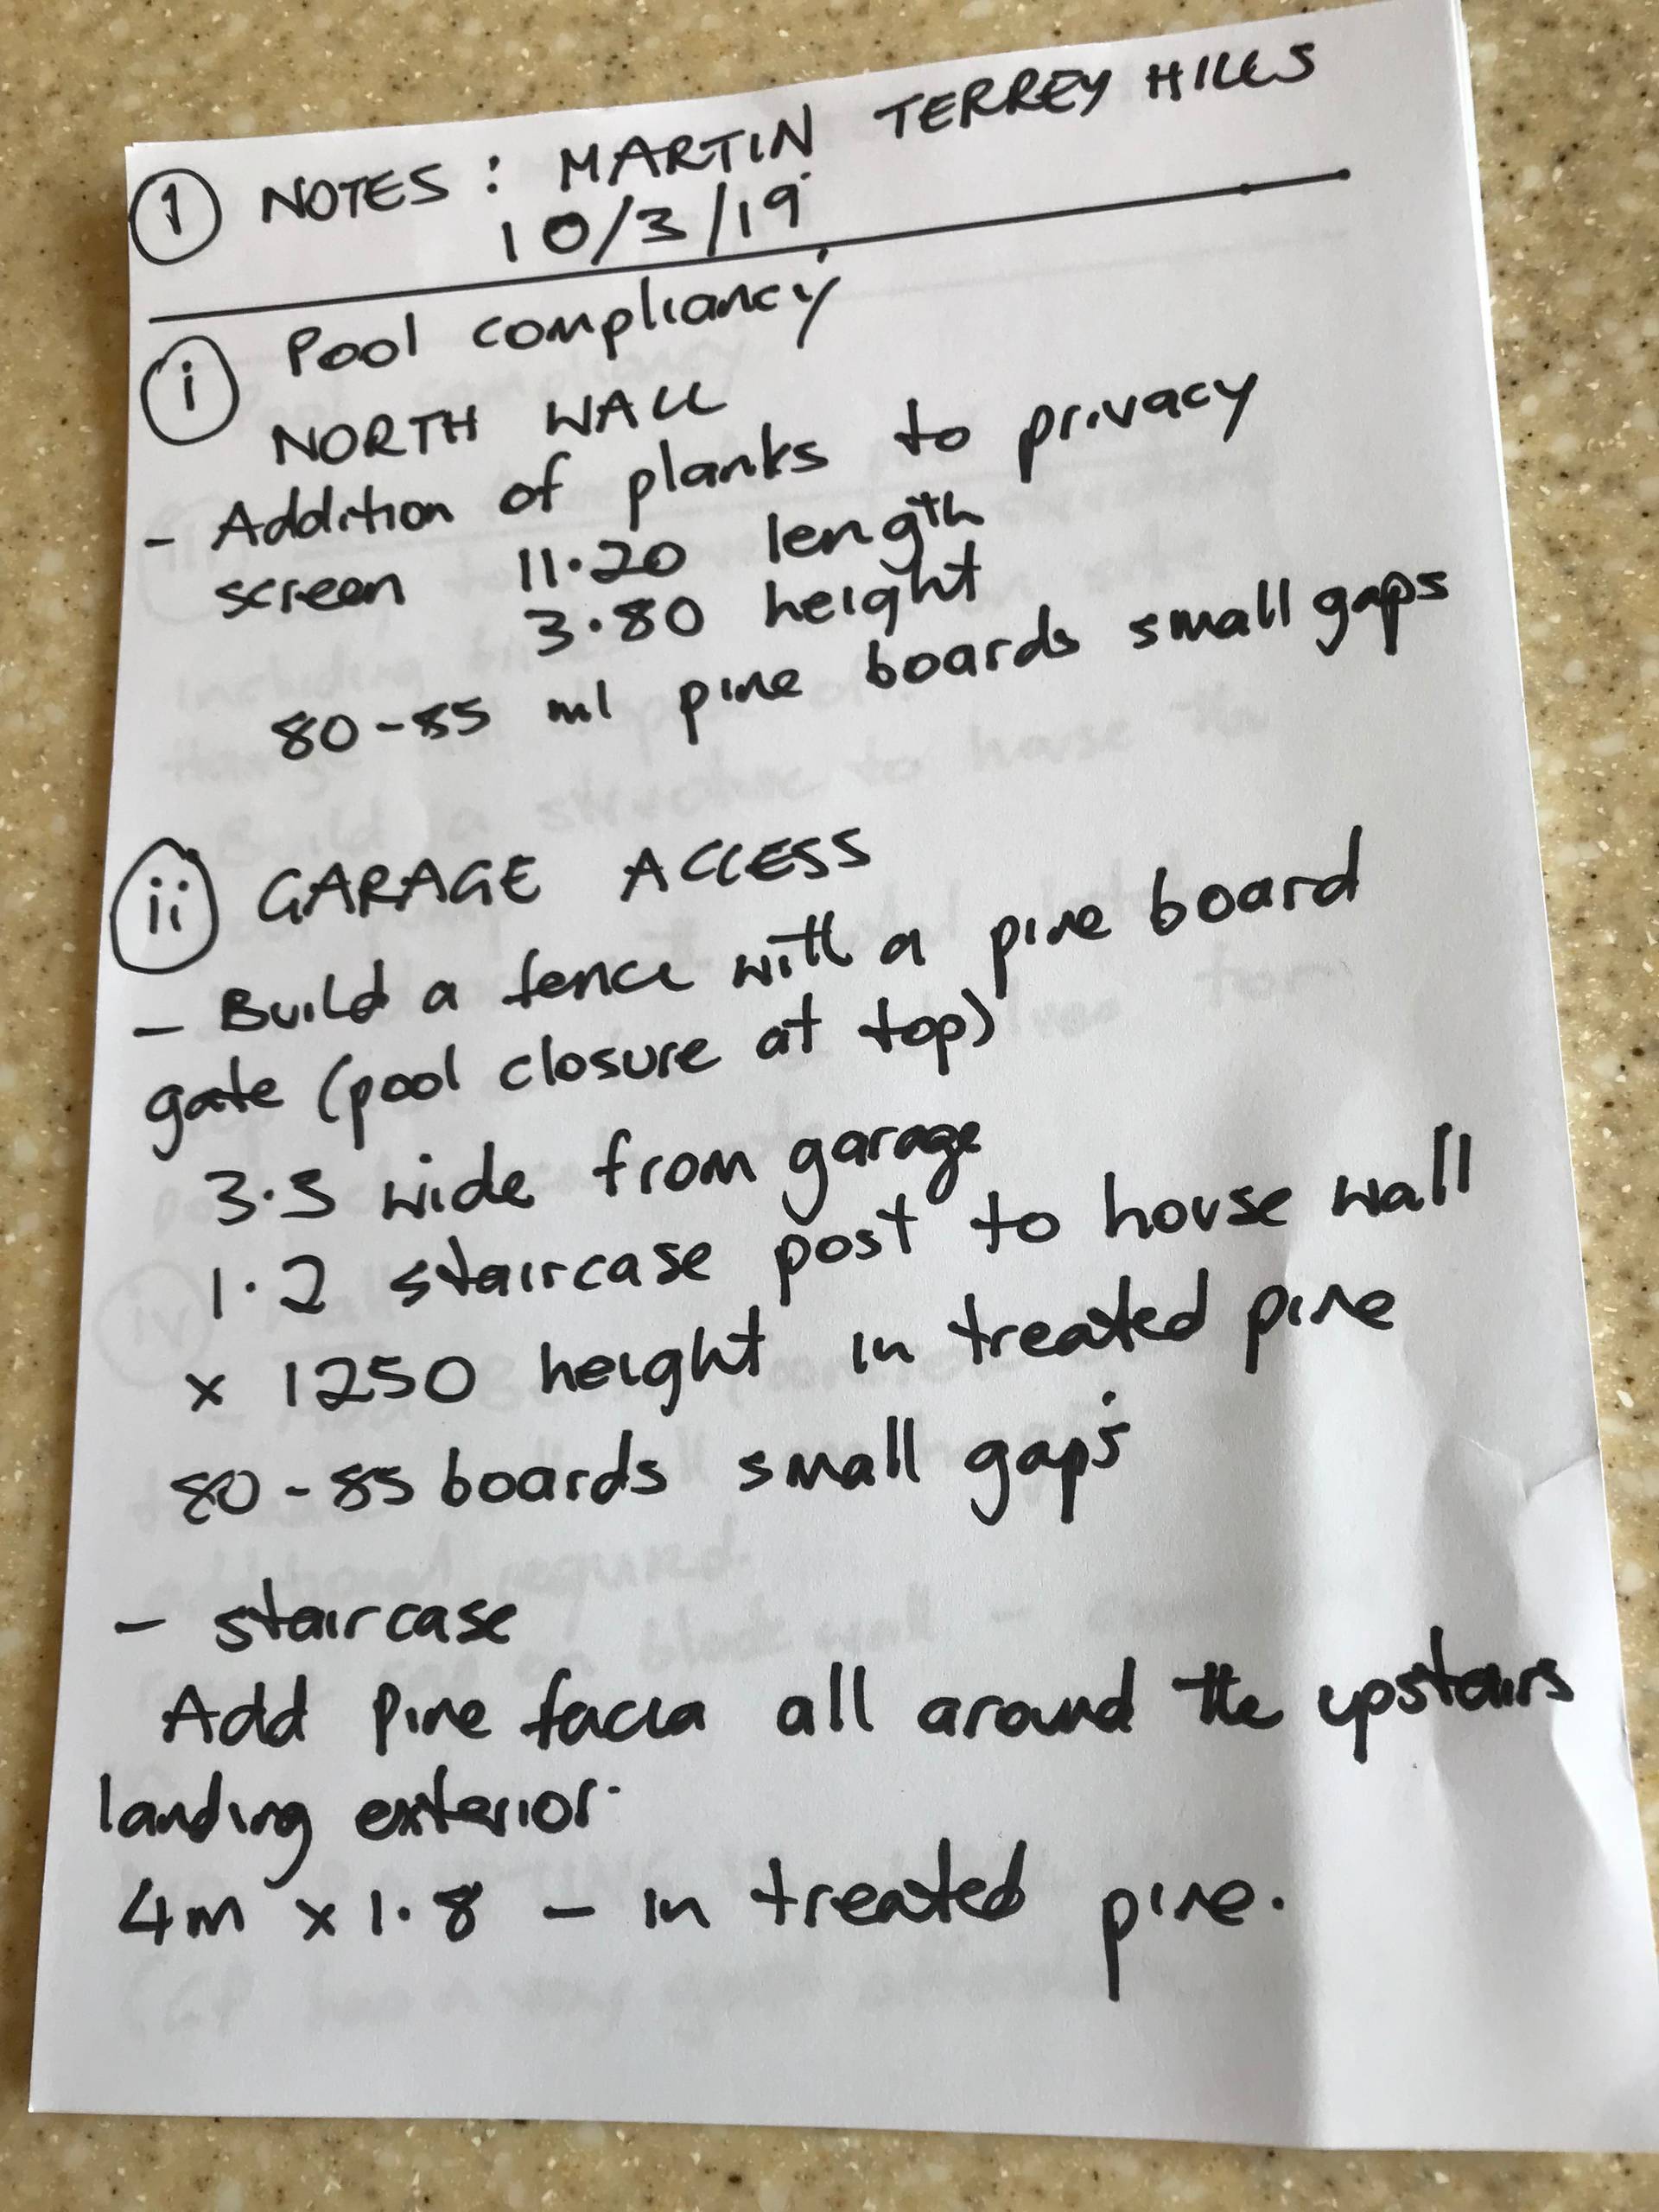 ① NOTES : MARTIN TERREY HILLS
10/3/19
ⓘ Pool compliancy
NORTH WALL
- Addition of planks to privacy
screen 11.20 length
3.80 height
80-85 ml pine boards small gaps
ii GARAGE ACCESS
- Build a fence with a pine board
gate (pool closure at top)
3.5 wide from garage
1.2 staircase post to house wall
x 1250 height in treated pine
80-85 boards small gaps
- staircase
Add Pine facia all around the upstairs
landing exterior.
4m x 1.8 - in treated pine.